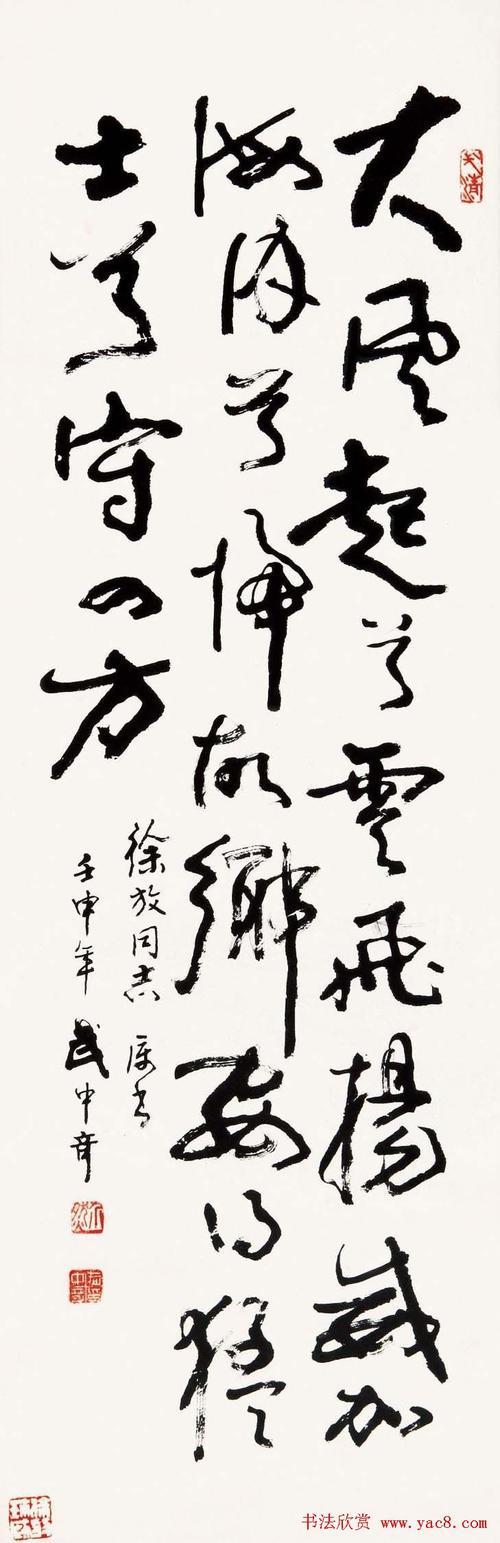 大風起兮雲飛揚威加
海內兮歸故鄉安得猛
士兮守四方
徐放同志 属书
壬申年 武中奇
书法欣赏 www.yac8.com